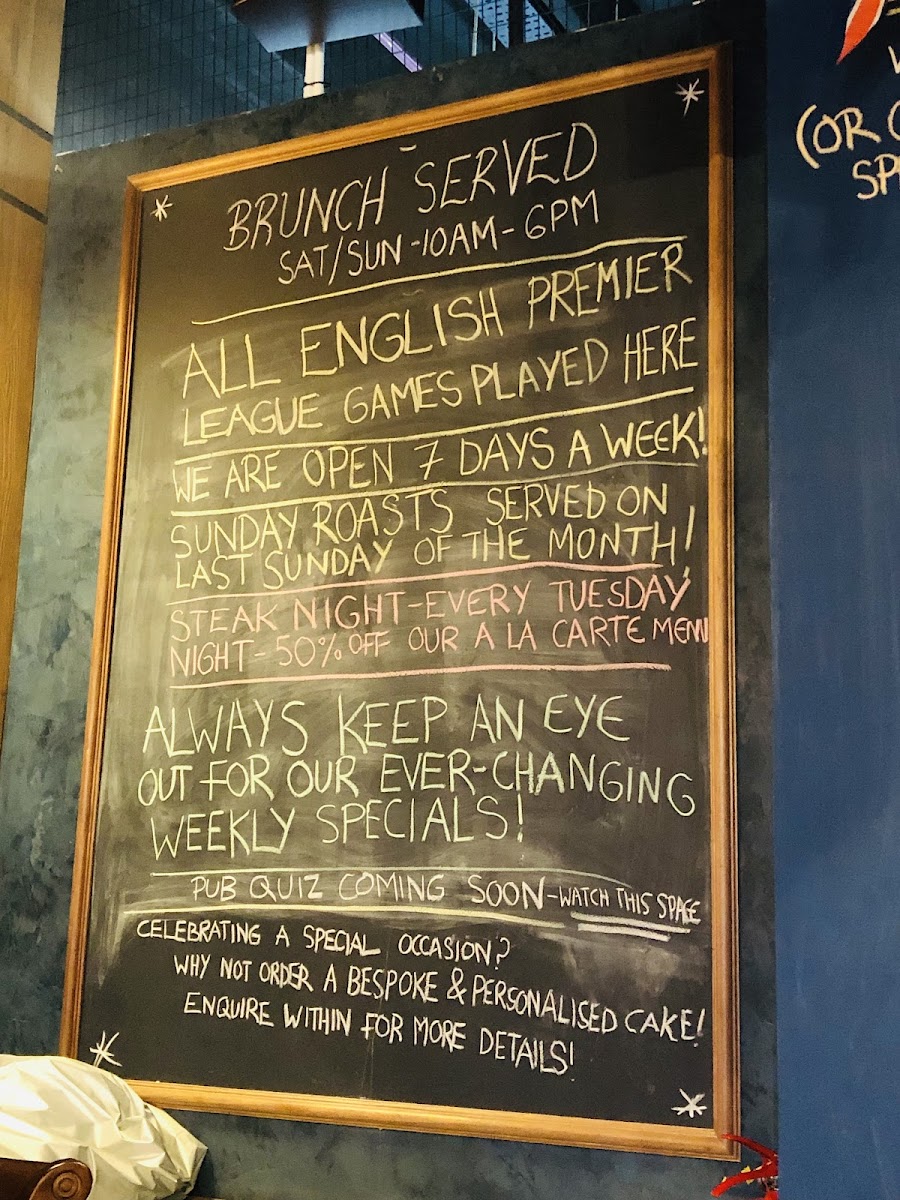 BRUNCH SERVED
SAT/SUN-10AM-6PM
ALL ENGLISH PREMIER
LEAGUE GAMES PLAYED HERE
WE ARE OPEN 7 DAYS A WEEK!
SUNDAY ROASTS SERVED ON
LAST SUNDAY OF THE MONTH!
STEAK NIGHT-EVERY TUESDAY
NIGHT-50% OFF OUR A LA CARTE MENU
ALWAYS KEEP AN EYE
OUT FOR OUR EVER-CHANGING
WEEKLY SPECIALS!
PUB QUIZ COMING SOON-WATCH THIS SPACE
CELEBRATING A SPECIAL OCCASION?
WHY NOT ORDER A BESPOKE & PERSONALISED CAKE!
ENQUIRE WITHIN FOR MORE DETAILS!
(OR